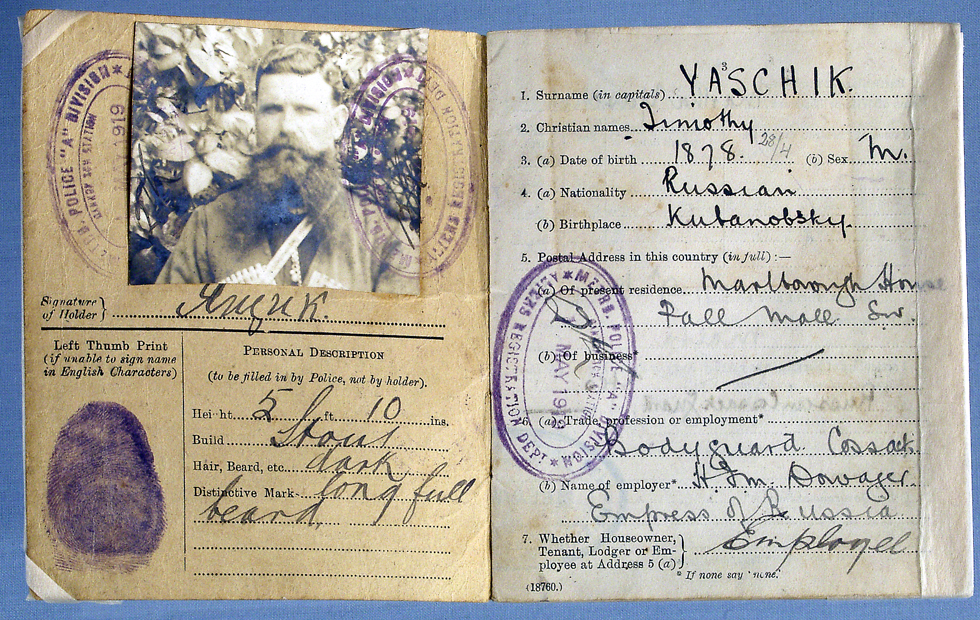 METRO. POLICE "A" DIVISION
1919
Signature of Holder }
Left Thumb Print
(if unable to sign name
in English Characters)
PERSONAL DESCRIPTION
(to be filled in by Police, not by holder).
Height 5 ft. 10 ins.
Build Stout
Hair, Beard, etc. dark
Distinctive Mark long full
beard
3
1. Surname (in capitals) YASCHIK.
2. Christian names Timothy
3. (a) Date of birth 1878. 28/4 (b) Sex M.
4. (a) Nationality Russian
(b) Birthplace Kubanobsky
5. Postal Address in this country (in full) :—
(a) Of present residence. Marlborough House
Pall Mall Sw.
(b) Of business*
6. (a) Trade, profession or employment*
Bodyguard Cossack
(b) Name of employer* H.I.M. Dowager
Empress of Russia
7. Whether Houseowner, Tenant, Lodger or Employee at Address 5 (a) } Employee
* If none say "none."
(18760.)
METRO. POLICE "A" DIVISION
ALIENS REGISTRATION DEPT
MAY 1919